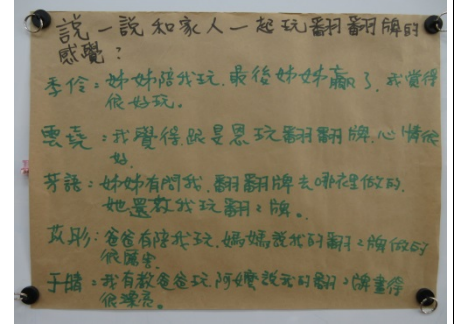 說一說和家人一起玩翻翻牌的
感覺?
季伶:姊姊陪我玩,最後姊姊贏了,我覺得
很好玩。
雲堯:我覺得跟昱恩玩翻翻牌,心情很
好.
芳語:姊姊有問我,翻翻牌去哪裡做的.
她還教我玩翻翻牌。
苡彤:爸爸有陪我玩.媽媽說我的翻翻牌做的
很厲害.
于晴:我有教爸爸玩,阿嬤說我的翻翻牌畫得
很漂亮。